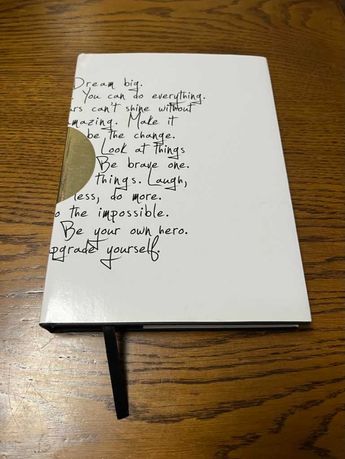 Dream big.
You can do everything.
rs can't shine without
mazing. Make it
be the change.
Look at things
Be brave one.
things. Laugh,
less, do more.
o the impossible.
Be your own hero.
pgrade yourself.